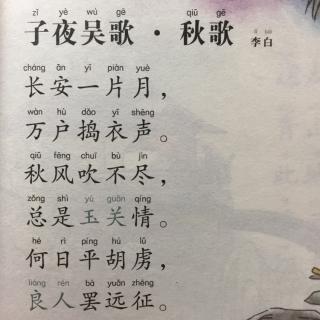 zǐ yè wú gē qiū gē
子夜吴歌·秋歌 李白
cháng ān yī piàn yuè
长安一片月，
wàn hù dǎo yī shēng
万户捣衣声。
qiū fēng chuī bù jìn
秋风吹不尽，
zǒng shì yù guān qíng
总是玉关情。
hé rì píng hú lǔ
何日平胡虏，
liáng rén bà yuǎn zhēng
良人罢远征。